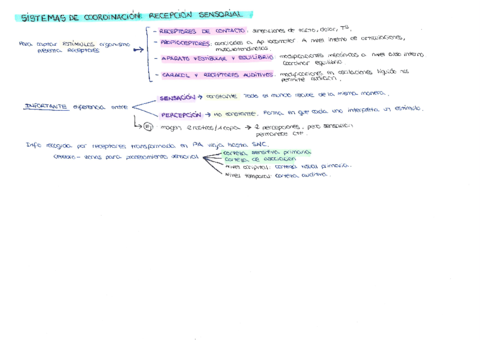 SISTEMAS DE COORDINACIÓN: RECEPCIÓN SENSORIAL
- RECEPTORES DE CONTACTO: sensaciones de tacto, dolor, Tª.
Para captar ESTÍMULOS organismo
necesita RECEPTORES
- PROPIOCEPTORES: asociados a Ap locomotor. A nivel interno de articulaciones,
musculotendinosos
- APARATO VESTIBULAR Y EQUILIBRIO: modificaciones mecánicas a nivel oído interno
equilibrio
- CARACOL Y RECEPTORES AUDITIVOS: modificaciones en oscilaciones líquido
permite audición
IMPORTANTE diferencia entre
SENSACIÓN → constante. Todo el mundo recibe de la misma manera.
PERCEPCIÓN → no constante. Forma en que cada uno interpreta un estímulo.
→ ej imagen 2 rostros / 1 copa → 2 percepciones, pero sensación
permanece cte
Info recogida por receptores transformada en PA viaja hasta SNC.
áreas para procesamiento sensorial
corteza sensitiva primaria
corteza de asociación
Nivel occipital: corteza visual primaria.
Nivel temporal: corteza auditiva.